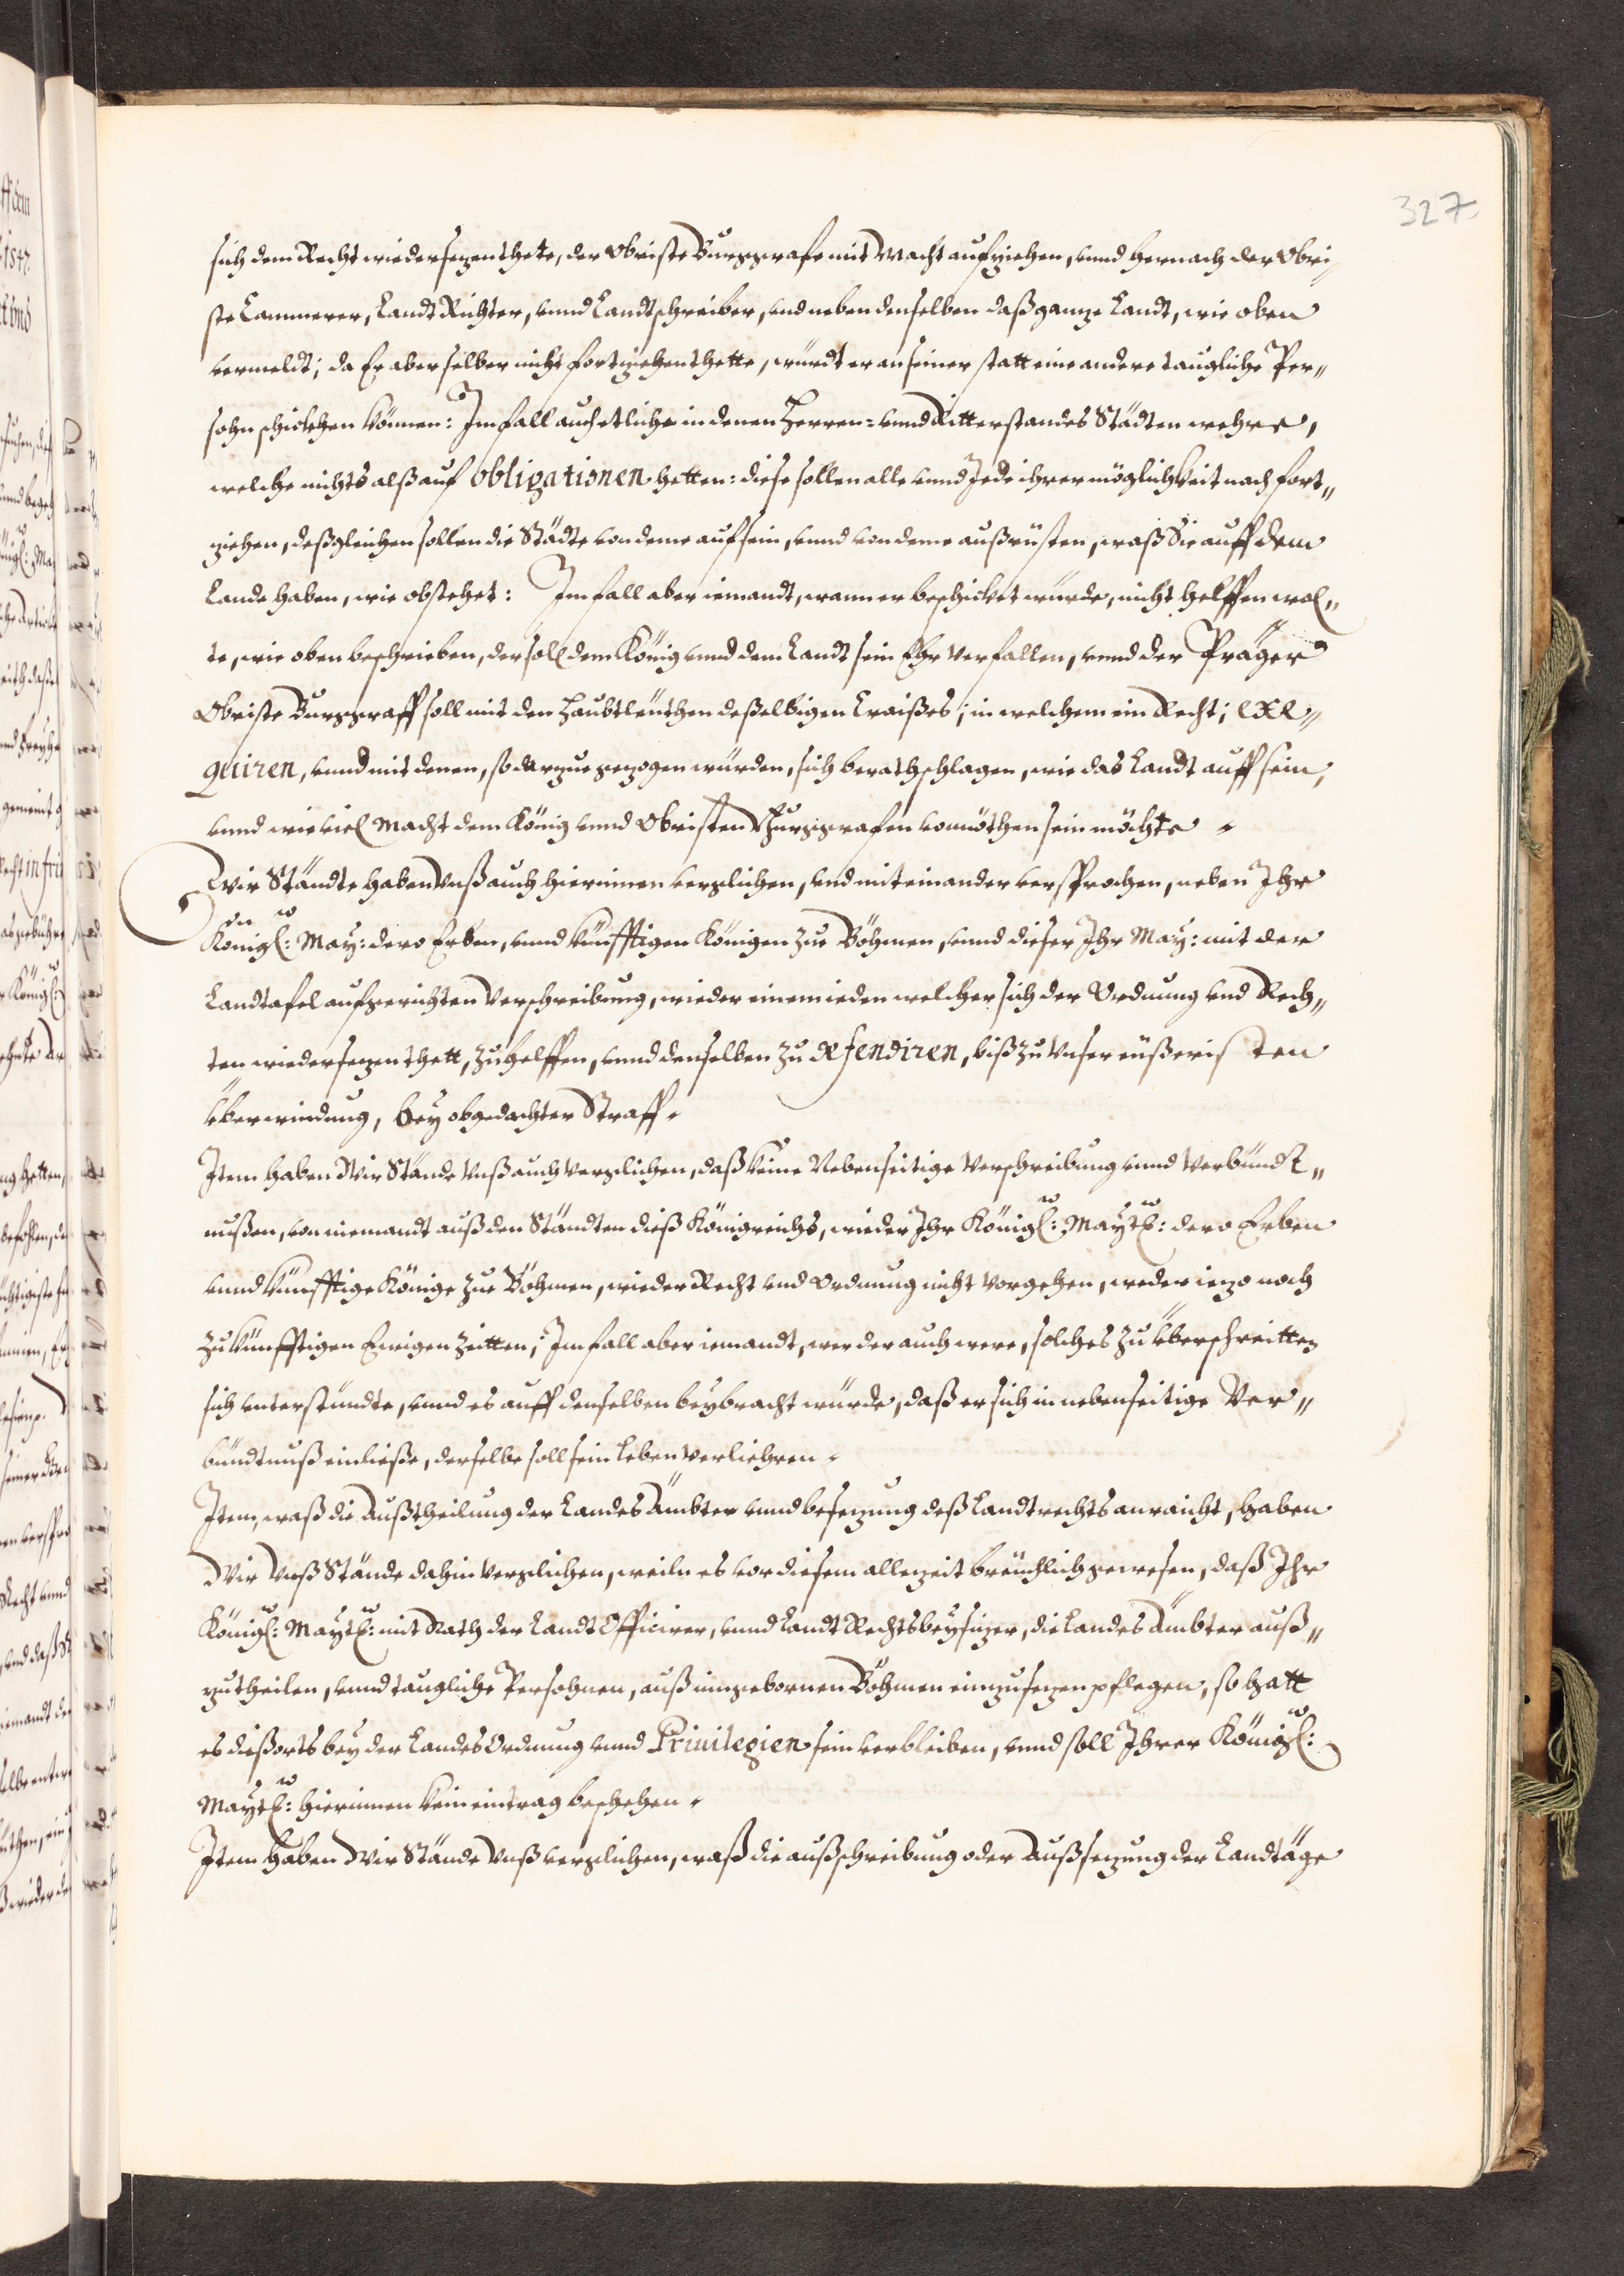 327
sich dem Recht wiedersezen thete, der Obriste Burggrafe mit Macht aufziehen, vnnd hernach der Obri„
ste Cammerer, Landt Richter, vnnd Landtschreiber, vnd neben denselben daß ganze Landt, wie oben
vermeldt; da Er aber selber nicht fortziehen thette, würdt er an seiner statt eine andere taugliche Per„
sohn schickhen können: Im fall auch etliche in denen Herren= vnnd Ritterstandes Städten wehre,
welche nichts alß auf obligationen hetten: diese sollen alle vnnd Jede ihrer möglichkeit nach fort„
ziehen, deßgleichen sollen die Städte von deme auf sein, vnnd von deme außrüsten, waß Sie auff dem
Lande haben, wie obstehet: Im fall aber iemandt, wann er beschicket würde, nicht helffen wol„
te, wie oben beschrieben, der soll dem König vnnd dem Landt sein Ehr verfallen, vnnd der Präger
Obriste Burggraff soll mit den Haubtleuthen deßelbigen Craißes; in welchem ein Recht; exe„
quiren, vnnd mit denen, so darzue gezogen würden, sich berathschlagen, wie das Landt auff sein,
vnnd wie viel Macht dem König vnnd Obristen Burggrafen vonnöthen sein möchte.
Wir Ständte haben Vnß auch hierinnen verglichen, vnd mit einander versprochen, neben Ihr
Königl: May: dero Erben, vnnd künfftigen Königen zue Böhmen, vnnd dieser Ihr May: mit der
Landtafel aufgerichten Verschreibung, wieder einem ieden welcher sich der Ordnung vnd Rech„
ten wiedersezen thett, zu helffen, vnnd denselben zu defendiren, biß zu Vnser eüßeristen
Überwindung, bey obgedachter Straff.
Item haben Wir Stände Vnß auch verglichen, daß keine Nebenseitige Verschreibung vnnd Verbündt„
nußen, von niemandt auß den Ständten dieß Königreichs, wieder Ihr Königl: Maytt: dero Erben
vnnd künfftige Könige zue Böhmen, wieder Recht vnd Ordnung nicht vorgehen, weder iezo noch
zu künfftigen Ewigen Zeitten; Im fall aber iemandt, wer der auch were, solches zu überschreitten
sich vnterstündte, vnnd es auff denselben beybracht würde, daß er sich in nebenseitige Ver„
bündtnuß einließe, derselbe soll sein Leben verliehren.
Item, waß die Außtheilung der Landes Ämbter vnnd besezung deß Landtrechts anraicht, haben
Wir Vnß Stände dahin verglichen, weiln es vor diesem allezeit breüchlich gewesen, daß Ihr
Königl: Maytt: mit Rath der Landt Officirer, vnnd Landt Rechtsbeysizer, die Landes Ämbter auß„
zutheilen, vnnd taugliche Persohnen, auß eingebornen Böhmen einzusezen pflegen, so hatt
es dießorts bey der Landes Ordnung vnnd Priuilegien sein verbleiben, vnnd soll Ihrer Königl:
Maytt: hierinnen kein eintrag beschehen.
Item haben Wir Stände Vnß verglichen, waß die außschreibung oder Außsezung der Landtäge